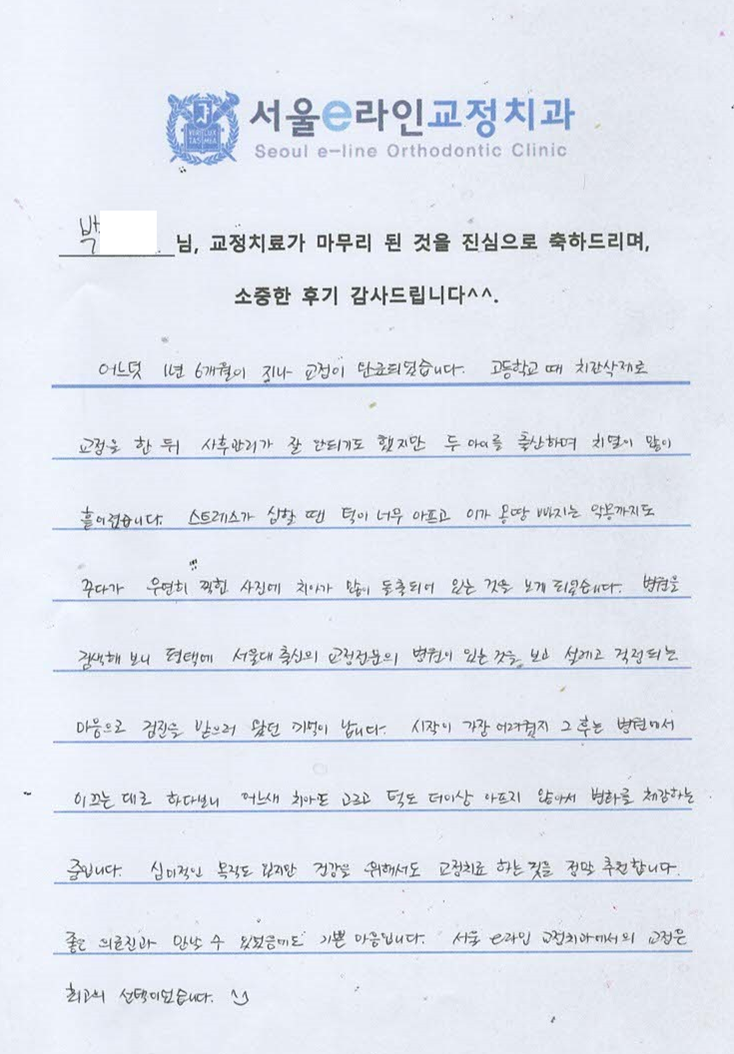 서울e라인교정치과
Seoul e-line Orthodontic Clinic
박 님, 교정치료가 마무리 된 것을 진심으로 축하드리며,
소중한 후기 감사드립니다^^.
어느덧 1년 6개월이 지나 교정이 완료되었습니다. 고등학교 때 치간삭제로
교정을 한 뒤 사후관리가 잘 안되기도 했지만 두 아이를 출산하며 치열이 많이
흩어졌습니다. 스트레스가 심할 땐 턱이 너무 아프고 이가 몽땅 빠지는 악몽까지도
꾸다가 우연히 찍힌 사진에 치아가 많이 돌출되어 있는 것을 보게 되었습니다. 병원을
검색해 보니 평택에 서울대 출신의 교정전문의 병원이 있는 것을 보고 설레고 걱정되는
마음으로 검진을 받으러 왔던 기억이 납니다. 시작이 가장 어려웠지 그 후는 병원에서
이끄는 대로 하다보니 어느새 치아도 고르고 턱도 더이상 아프지 않아서 변화를 체감하는
중입니다. 심미적인 목적도 있지만 건강을 위해서도 교정치료 하는 것을 정말 추천합니다.
좋은 의료진과 만날 수 있었음에도 기쁜 마음입니다. 서울 e라인 교정치과에서의 교정은
최고의 선택이었습니다.